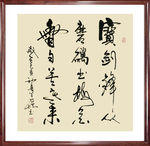 寶劍鋒从
磨礪出梅花
香自苦寒来